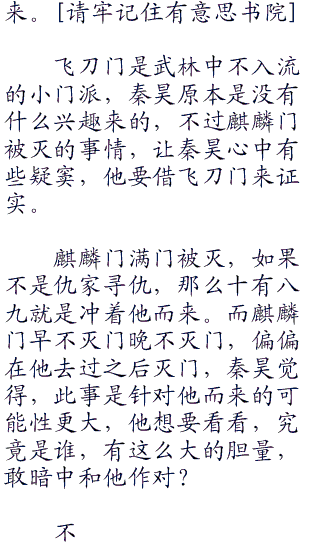 来。[请牢记住有意思书院]
飞刀门是武林中不入流
的小门派，秦昊原本是没有
什么兴趣来的，不过麒麟门
被灭的事情，让秦昊心中有
些疑窦，他要借飞刀门来证
实。
麒麟门满门被灭，如果
不是仇家寻仇，那么十有八
九就是冲着他而来。而麒麟
门早不灭门晚不灭门，偏偏
在他去过之后灭门，秦昊觉
得，此事是针对他而来的可
能性更大，他想要看看，究
竟是谁，有这么大的胆量，
敢暗中和他作对？
不